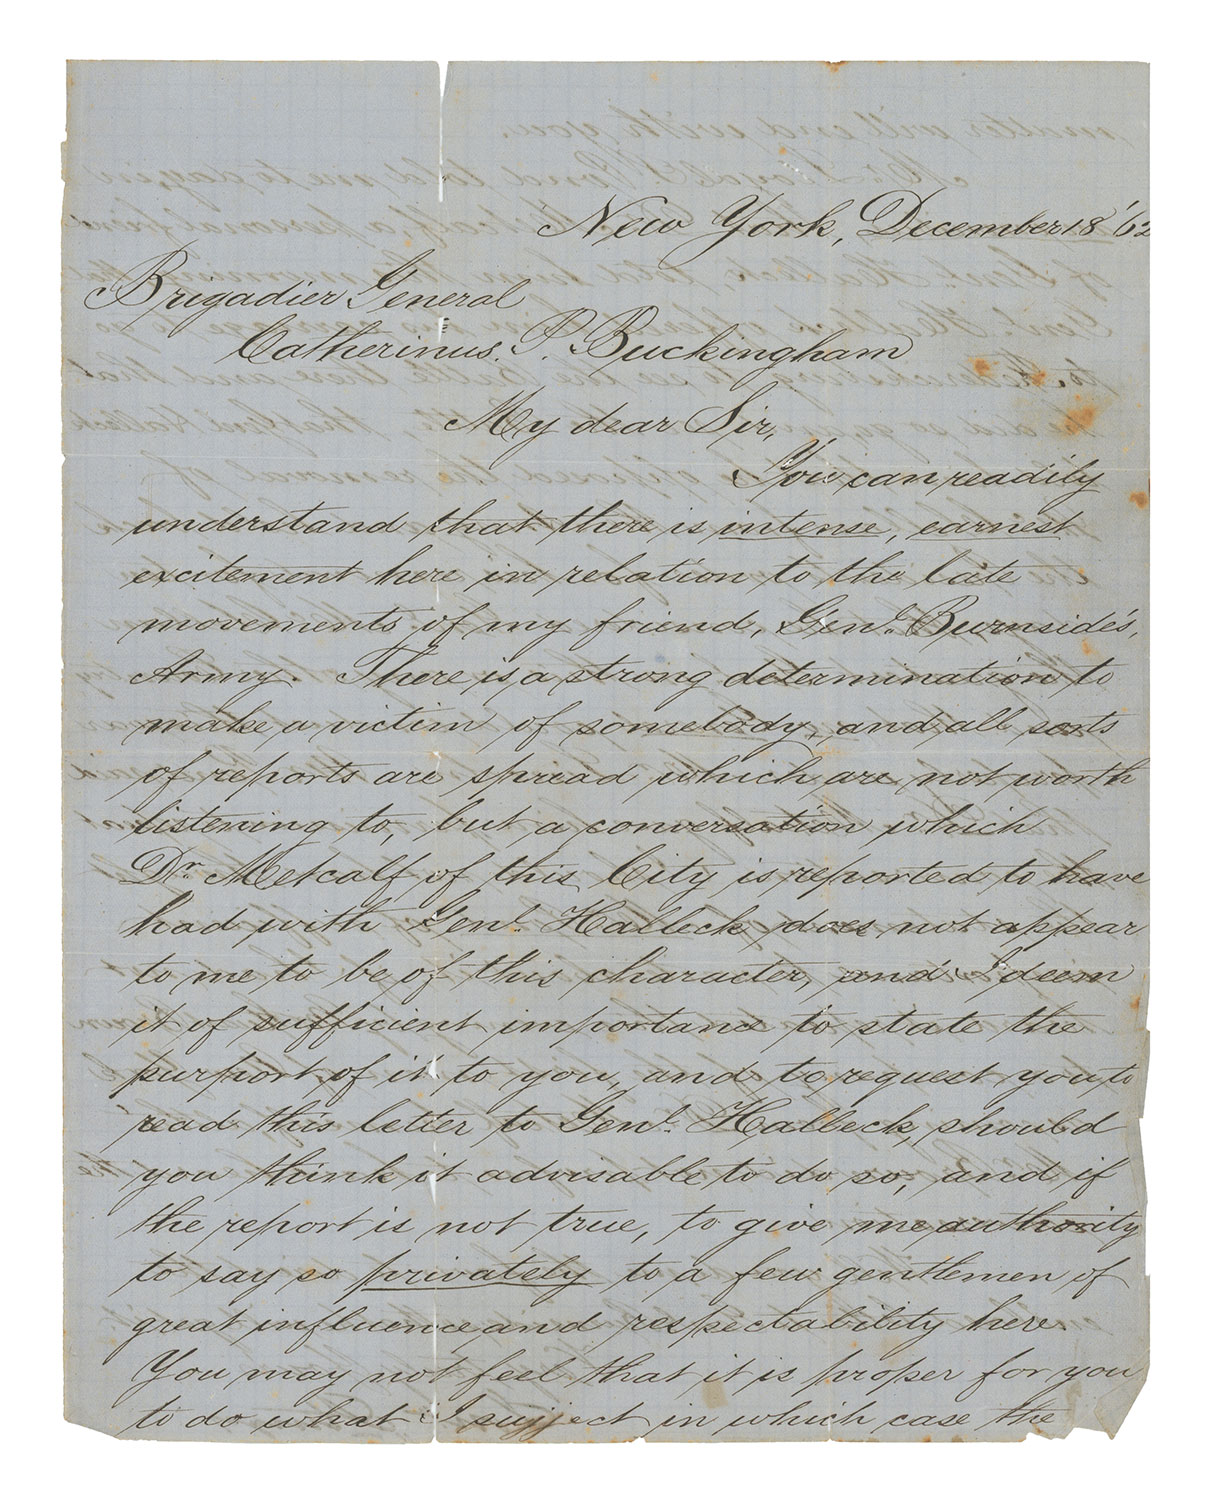 New York, December 18 '62
Brigadier General
Catherinus. P. Buckingham
My dear Sir,
You can readily
understand that there is intense, earnest
excitement here in relation to the late
movements of my friend, Genl. Burnside's,
Army. There is a strong determination to
make a victim of somebody, and all sorts
of reports are spread which are not worth
listening to, but a conversation which
Dr. Metcalf of this City is reported to have
had with Genl. Halleck does not appear
to me to be of this character, and I deem
it of sufficient importance to state the
purport of it to you, and to request you to
read this letter to Genl. Halleck, should
you think it advisable to do so, and if
the report is not true, to give me authority
to say so privately to a few gentlemen of
great influence and respectability here.
You may not feel that it is proper for you
to do what I suggest in which case the